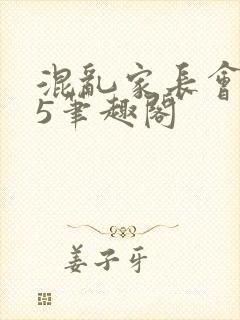 混亂家長會
5筆趣閣
姜子牙